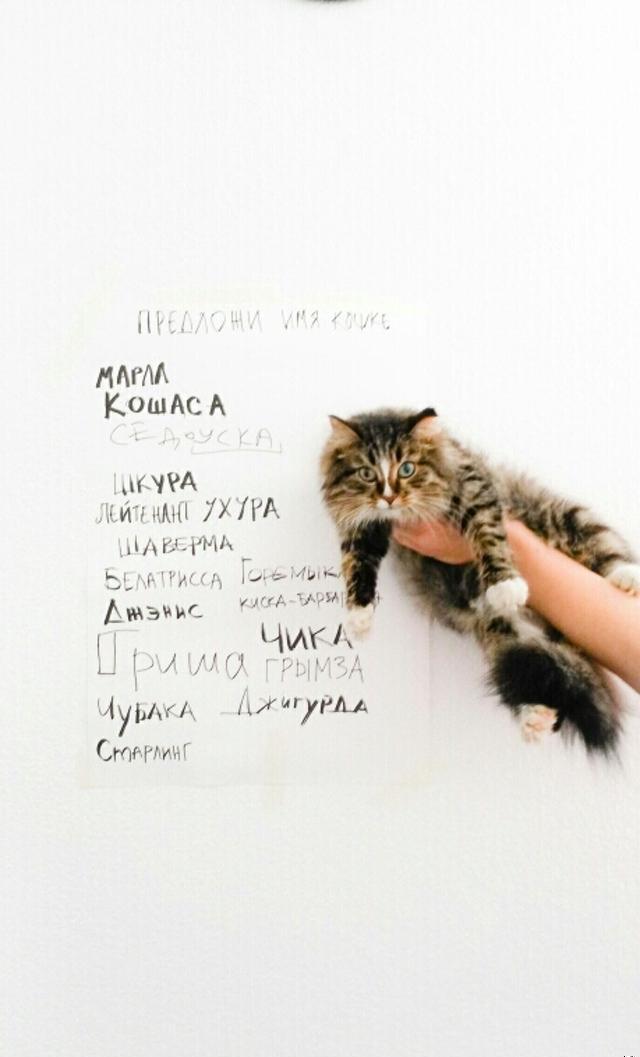 ПРЕДЛОЖИ ИМЯ КОШКЕ
МАРЛА
КОШАСА
СЕДОУСКА
ШКУРА
ЛЕЙТЕНАНТ УХУРА
ШАВЕРМА
БЕЛАТРИССА
ДЖЭНИС КИСКА-
ЧИКА
Гриша ГРЫМЗА
ЧУБАКА ДЖИГУРДА
СТАРЛИНГ